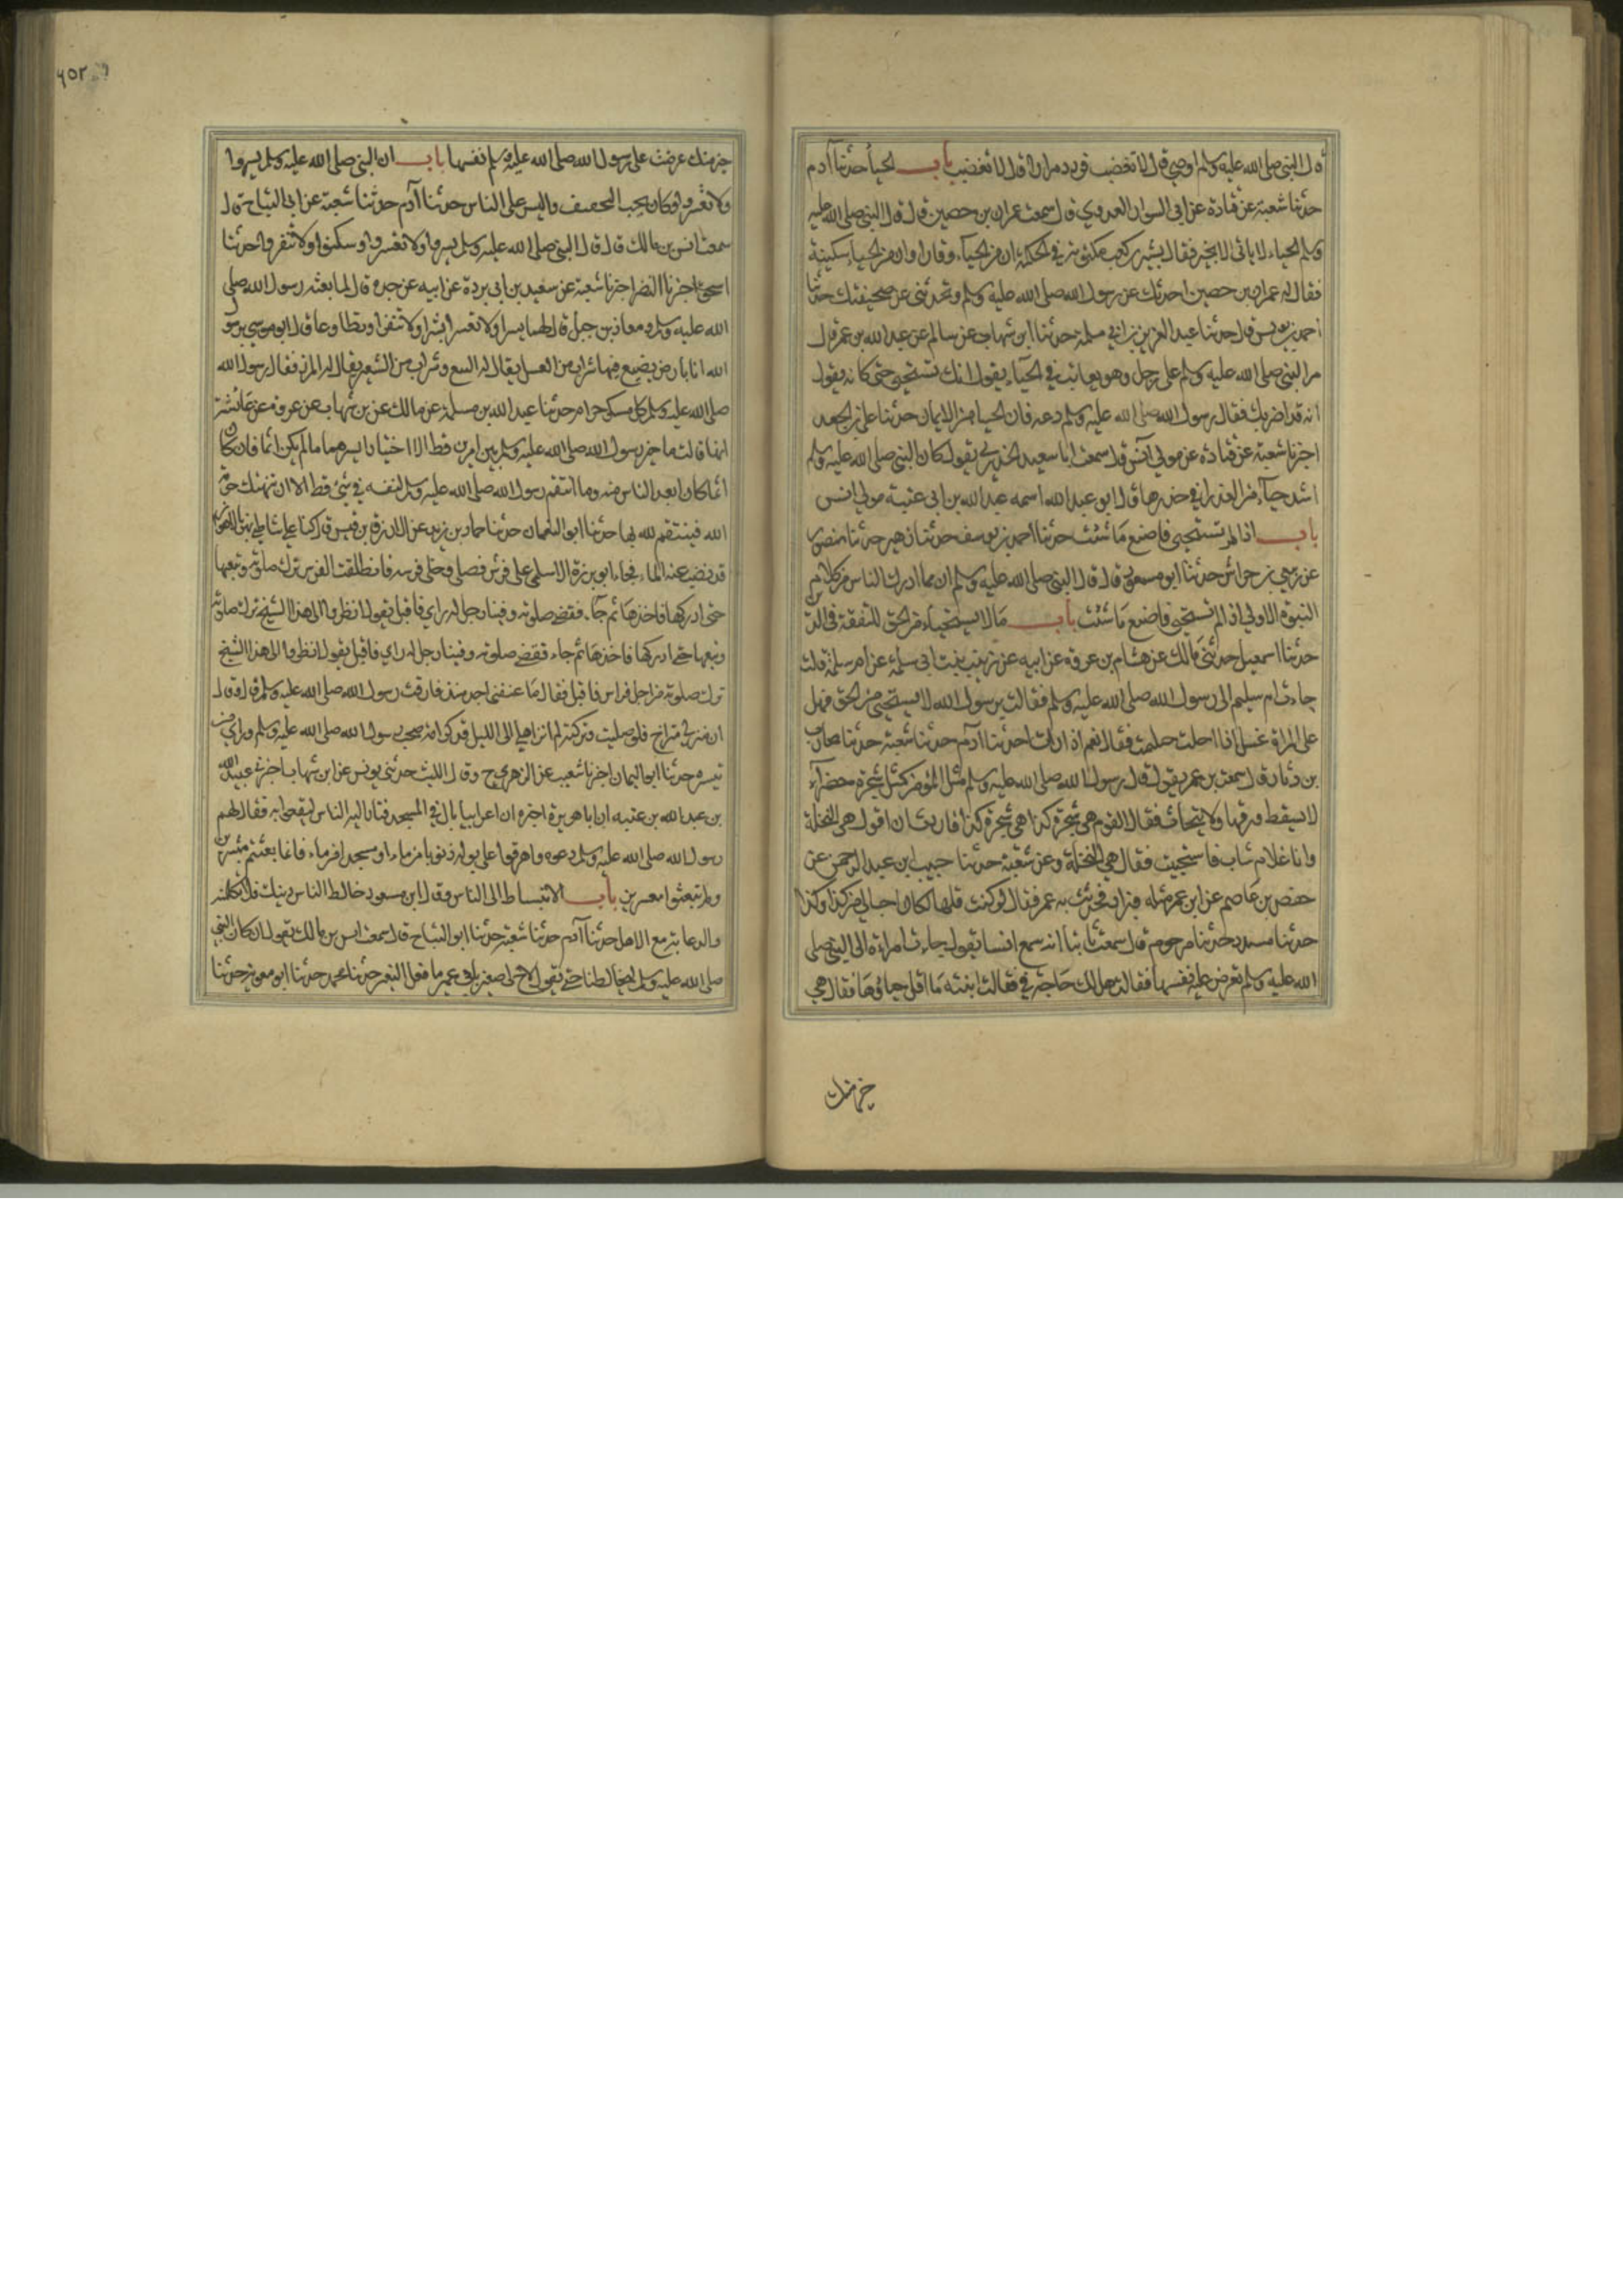 ه ل النبي صلى الله عليه وسلم اوصني قال لا تغضب فردد مرارا قال لا تغضب باب الحياء حدثنا آدم
حدثنا شعبة عن قتادة عن ابي السوار العدوي قال سمعت عمران بن حصين قال قال النبي صلى الله عليه
وسلم الحياء لا ياتي الا بخير فقال بشير بن كعب مكتوب في الحكمة ان من الحياء وقارا وان من الحياء سكينة
فقال له عمران بن حصين احدثك عن رسول الله صلى الله عليه وسلم وتحدثني عن صحيفتك حدثنا
احمد بن يونس قال حدثنا عبد العزيز بن ابي سلمة حدثنا ابن شهاب عن سالم عن عبد الله بن عمر قال
مر النبي صلى الله عليه وسلم على رجل وهو يعاتب في الحياء يقول انك تستحيي حتى كانه يقول
انه قد اضر بك فقال رسول الله صلى الله عليه وسلم دعه فان الحياء من الايمان حدثنا علي بن الجعد
اخبرنا شعبة عن قتادة عن مولى انس قال سمعت ابا سعيد الخدري يقول كان النبي صلى الله عليه وسلم
اشد حياء من العذراء في خدرها قال ابو عبد الله اسمه عبد الله بن ابي عتبة مولى انس
باب اذا لم تستحيي فاصنع ما شئت حدثنا احمد بن يوسف حدثنا زهير حدثنا منصور
عن ربعي بن حراش حدثنا ابو مسعود قال قال النبي صلى الله عليه وسلم ان مما ادرك الناس من كلام
النبوة الاولى اذا لم تستحيي فاصنع ما شئت باب ما لا يستحياء من الحق للتفقه في الدين
حدثنا اسمعيل حدثني مالك عن هشام بن عروة عن ابيه عن زينب بنت ابي سلمة عن ام سلمة قالت
جاءت ام سليم الى رسول الله صلى الله عليه وسلم فقالت يرسول الله لا يستحيي من الحق فهل
على المراة غسل اذا احتلمت فقال نعم اذا رات احدثنا آدم حدثنا شعبة حدثنا محارب
بن دثار قال سمعت بن عمر يقول قال رسول الله صلى الله عليه وسلم مثل المؤمن كمثل شجرة خضراء
لا يسقط ورقها ولا يتحات فقال القوم هي شجرة كذا هي شجرة كذا فاردت ان اقول هي النخلة
وانا غلام شاب فاستحييت فقال هي النخلة وعن شعبة حدثنا خبيب ابن عبد الرحمن عن
حفص بن عاصم عن ابن عمر مثله وزاد فحدثت به عمر فقال لو كنت قلتها لكان احب الي من كذا وكذا
حدثنا مسدد حدثنا مرحوم قال سمعت ثابتا انه سمع انسا يقول جاءت امراة الى النبي صلى
الله عليه وسلم تعرض عليه نفسها فقالت هل لك حاجة في فقالت ابنته ما اقل حياؤها فقال هي
خير منك
٤٥٢
خير منك عرضت على رسول الله صلى الله عليه وسلم نفسها باب ان النبي صلى الله عليه وسلم يسروا
ولا تعسروا وكان يحب التخفيف واليسر على الناس حدثنا آدم حدثنا شعبة عن ابي التياح قال
سمعت انس بن مالك قال قال النبي صلى الله عليه وسلم يسروا ولا تعسروا وسكنوا ولا تنفروا حدثنا
اسحق اخبرنا النضر اخبرنا شعبة عن سعيد بن ابي بردة عن ابيه عن جده قال لما بعثه رسول الله صلى
الله عليه وسلم ومعاذ بن جبل قال لهما يسرا ولا تعسرا بشرا ولا تنفرا وتطاوعا قال ابو موسى يرسول
الله انا بارض يصنع فيها شراب من العسل يقال له البتع وشراب من الشعير يقال له المزر فقال رسول الله
صلى الله عليه وسلم كل مسكر حرام حدثنا عبد الله بن مسلمة عن مالك عن بن شهاب عن عروة عن عائشة
انها قالت ما خير رسول الله صلى الله عليه وسلم بين امرين قط الا اختار ايسرهما ما لم يكن اثما فان كان
اثما كان ابعد الناس منه وما انتقم رسول الله صلى الله عليه وسلم لنفسه في شئ قط الا ان تنتهك حرمة
الله فينتقم لله بها حدثنا ابو النعمان حدثنا حماد بن زيد عن الازرق بن قيس قال كنا على شاطئ نهر بالاهواز
قد نضب عنه الماء فجاء ابو برزة الاسلمي على فرس فصلى وخلى فرسه فانطلقت الفرس ترك صلوته وتبعها
حتى ادركها فاخذها ثم جاء فقضى صلوته وفينا رجل له راي فاقبل يقول انظروا الى هذا الشيخ ترك صلوته
وتبعها حتى ادركها فاخذها ثم جاء فقضى صلوته وفينا رجل له راي فاقبل يقول انظروا الى هذا الشيخ
ترك صلوته من اجل فرس فاقبل فقال ما عنفني احد منذ فارقت رسول الله صلى الله عليه وسلم قال وقال
ان منزلي متراخ فلو صليت وتركته لم ات اهلي الى الليل وذكر انه صحب رسول الله صلى الله عليه وسلم وراى من
تيسره حدثنا ابو اليمان اخبرنا شعيب عن الزهري ح وقال الليث حدثني يونس عن ابن شهاب اخبرني عبيد الله
بن عبد الله بن عتبه ان ابا هريرة اخبره ان اعرابيا بال في المسجد فثار اليه الناس ليقعوا به فقال لهم
رسول الله صلى الله عليه وسلم دعوه واهرقوا على بوله ذنوبا من ماء او سجلا من ماء فانما بعثتم ميسرين
ولم تبعثوا معسرين باب الانبساط الى الناس وقال ابن مسعود خالط الناس دينك فلا تكلمنه
والدعابة مع الاهل حدثنا آدم حدثنا شعبة حدثنا ابو التياح قال سمعت انس بن مالك يقول ان كان النبي
صلى الله عليه وسلم ليخالطنا حتى يقول لاخ لي صغير يابا عمير ما فعل النغير حدثنا محمد حدثنا ابو معوية حدثنا